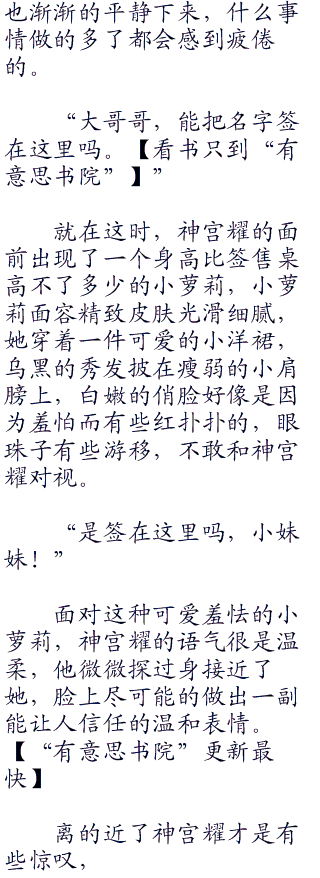 也渐渐的平静下来，什么事
情做的多了都会感到疲倦
的。
“大哥哥，能把名字签
在这里吗。【看书只到“有
意思书院”】”
就在这时，神宫耀的面
前出现了一个身高比签售桌
高不了多少的小萝莉，小萝
莉面容精致皮肤光滑细腻，
她穿着一件可爱的小洋裙，
乌黑的秀发披在瘦弱的小肩
膀上，白嫩的俏脸好像是因
为羞怕而有些红扑扑的，眼
珠子有些游移，不敢和神宫
耀对视。
“是签在这里吗，小妹
妹！”
面对这种可爱羞怯的小
萝莉，神宫耀的语气很是温
柔，他微微探过身接近了
她，脸上尽可能的做出一副
能让人信任的温和表情。
【“有意思书院”更新最
快】
离的近了神宫耀才是有
些惊叹，